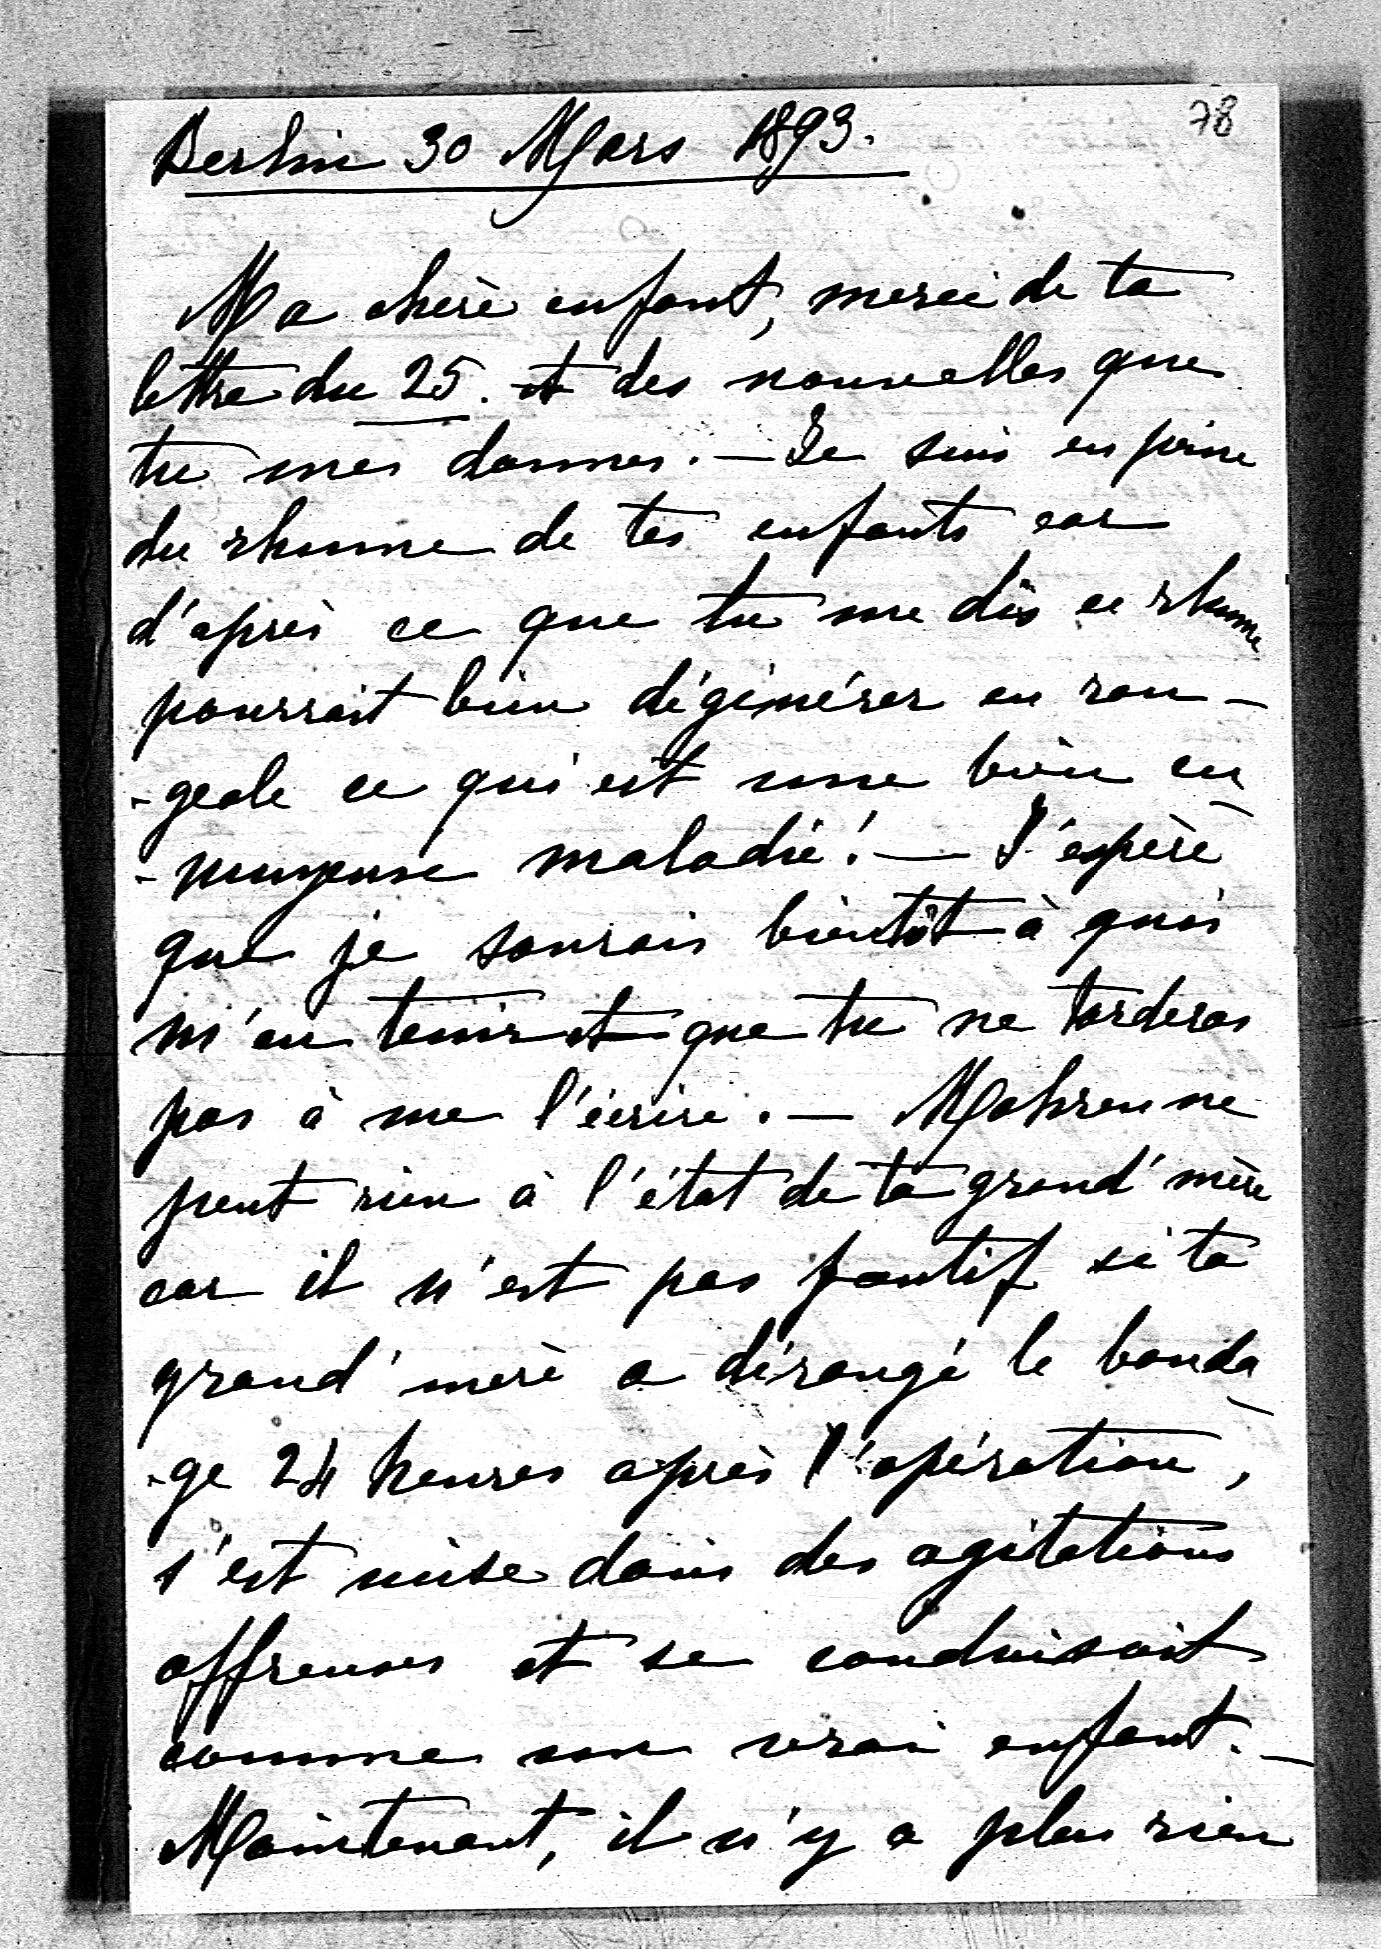 78
Berlin 30 Mars 1893.
Ma chère enfant, merci de ta
lettre du 25. et des nouvelles que
tu mes donnes. — Je suis en peine
du rhume de tes enfants car
d'après ce que tu me dis ce rhume
pourrait bien dégénérer en rou-
-geole ce qui est une bien en
-nuyeuse maladie! — J'espère
que je saurais bientôt à quoi
m'en tenir et que tu ne tarderas
pas à me l'écrire. — Mahreu ne
peut rien à l'état de ta grand'mère
car il n'est pas fautif si ta
grand'mère a dérangé le banda-
-ge 24 heures après l'opération,
s'est mise dans des agitations
affreuses et se conduisait
comme un vrai enfant. —
Maintenant, il n'y a plus rien